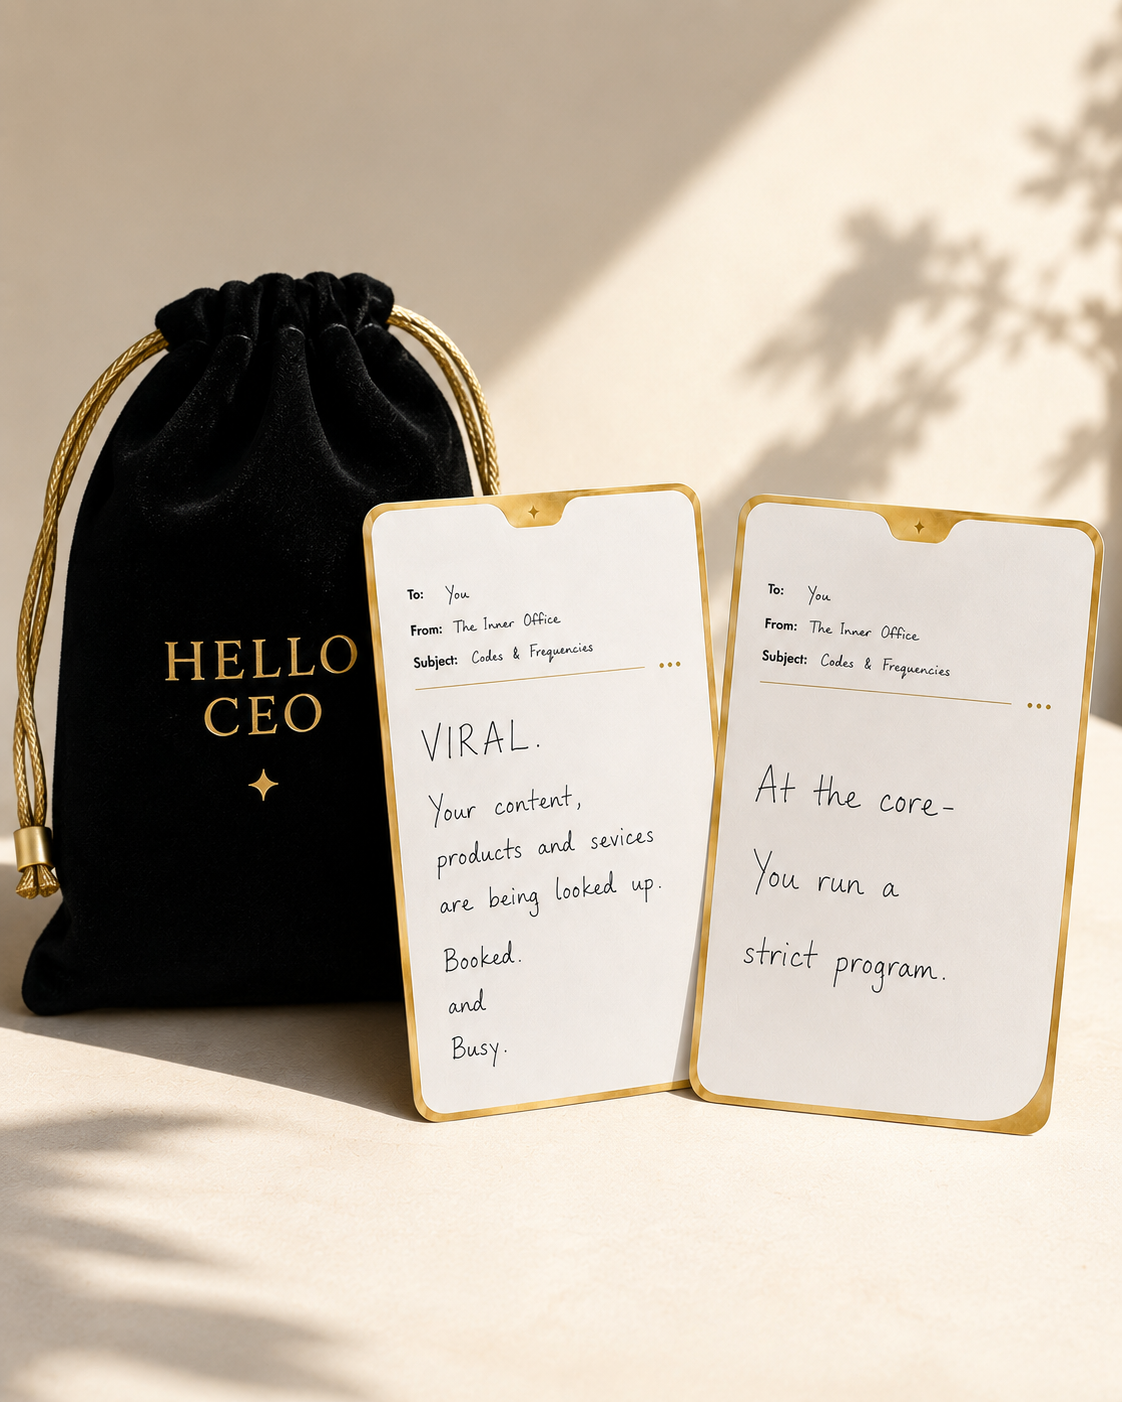 HELLO
CEO
To: You
From: The Inner Office
Subject: Codes & Frequencies
VIRAL.
Your content,
products and sevices
are being looked up.
Booked.
and
Busy.
To: You
From: The Inner Office
Subject: Codes & Frequencies
At the core-
You run a
strict program.